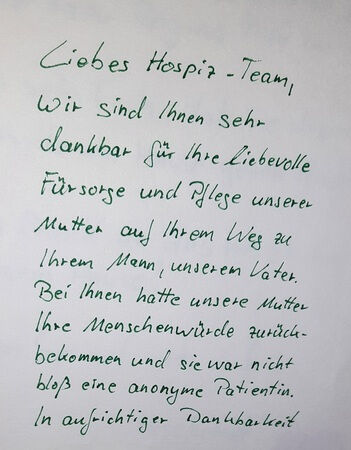 Liebes Hospiz-Team,
wir sind Ihnen sehr
dankbar für Ihre liebevolle
Fürsorge und Pflege unserer
Mutter auf Ihrem Weg zu
Ihrem Mann, unserem Vater.
Bei Ihnen hatte unsere Mutter
Ihre Menschenwürde zurück-
bekommen und sie war nicht
bloß eine anonyme Patientin.
In aufrichtiger Dankbarkeit